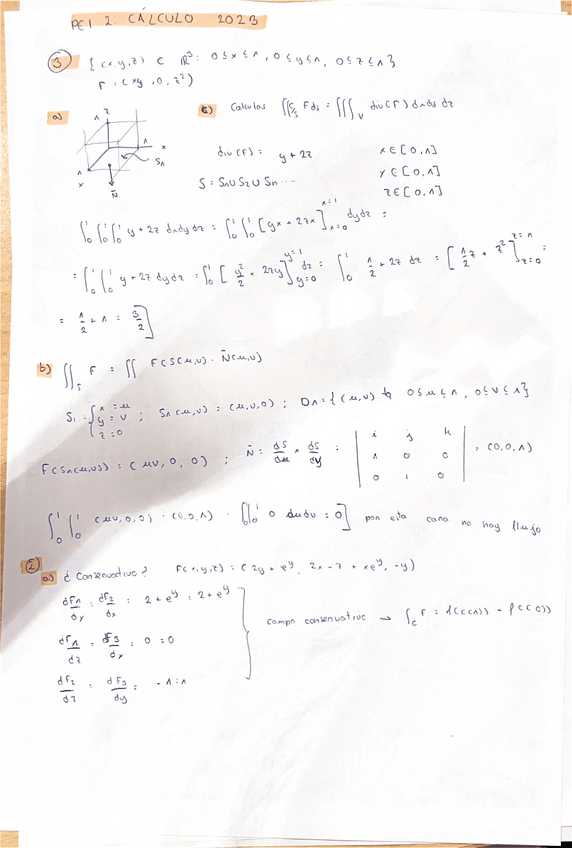 PEI 2: CÁLCULO 2023
③ {(x,y,z) ∈ ℝ³: 0≤x≤1, 0≤y≤1, 0≤z≤1}
F: (xy, 0, z²)
a)
z
1
1
x
1
y
S1
N̄
c) Calculas ∬_S F ds = ∭_V div(F) dxdydz
div(F): y + 2z
x ∈ [0,1]
y ∈ [0,1]
z ∈ [0,1]
S = S1 ∪ S2 ∪ Sn ....
∫₀¹∫₀¹∫₀¹ y + 2z dxdydz = ∫₀¹∫₀¹ [yx + 2zx]_{x=0}^{x=1} dydz =
= ∫₀¹∫₀¹ y + 2z dydz = ∫₀¹ [y²/2 + 2zy]_{y=0}^{y=1} dz = ∫₀¹ 1/2 + 2z dz = [1/2 z + z²]_{z=0}^{z=1} =
= 1/2 + 1 = 3/2]
b) ∬_S F = ∬ F(S(u,v)) · N̄(u,v)
S1: {x = u, y = v, z = 0 ; S1(u,v) = (u,v,0) ; D1 = {(u,v) 0≤u≤1, 0≤v≤1}
F(S1(u,v)) = (uv, 0, 0) ; N̄ = dS/du × dS/dy = | i j k ; 1 0 0 ; 0 1 0 | = (0,0,1)
∫₀¹∫₀¹ (uv,0,0) · (0,0,1) = [∫₀¹∫₀¹ 0 dudv = 0] por esta cara no hay flujo
② a) ¿Conservativo? F(x,y,z) = (2y + e^y, 2x - z + xe^y, -y)
dF1/dy = dF2/dx = 2 + e^y = 2 + e^y
dF1/dz = dF3/dx = 0 = 0
campo conservativo → ∫_C F = f(c(1)) - f(c(0))
dF2/dz = dF3/dy = -1 = 1